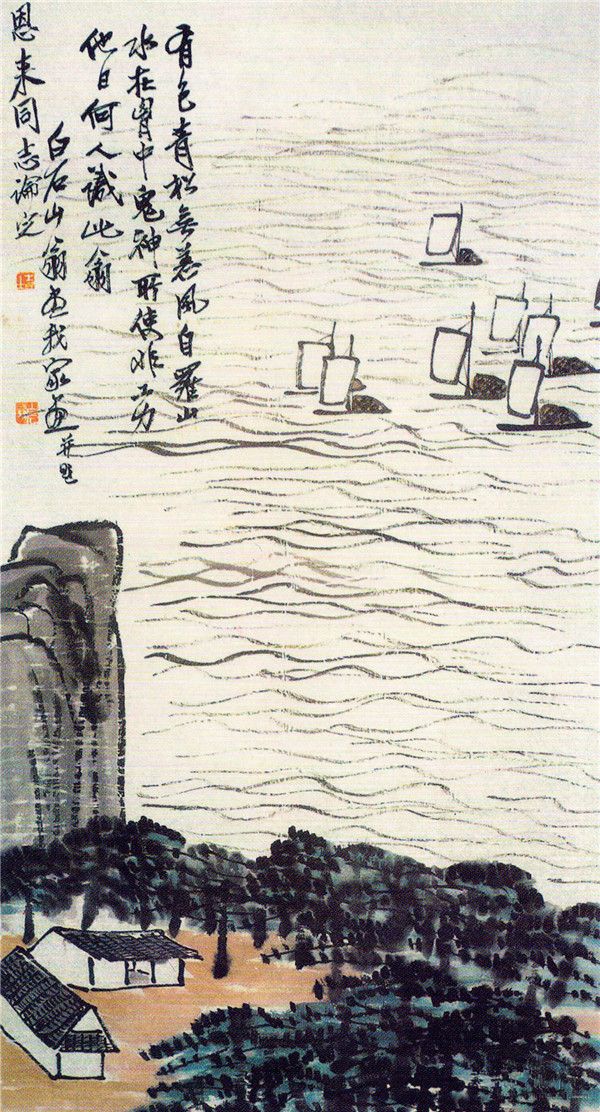 有色青松無恙風自羅山
水在胷中鬼神所使非工力
他日何人識此翁
白石山翁画我家画并題
恩来同志論定